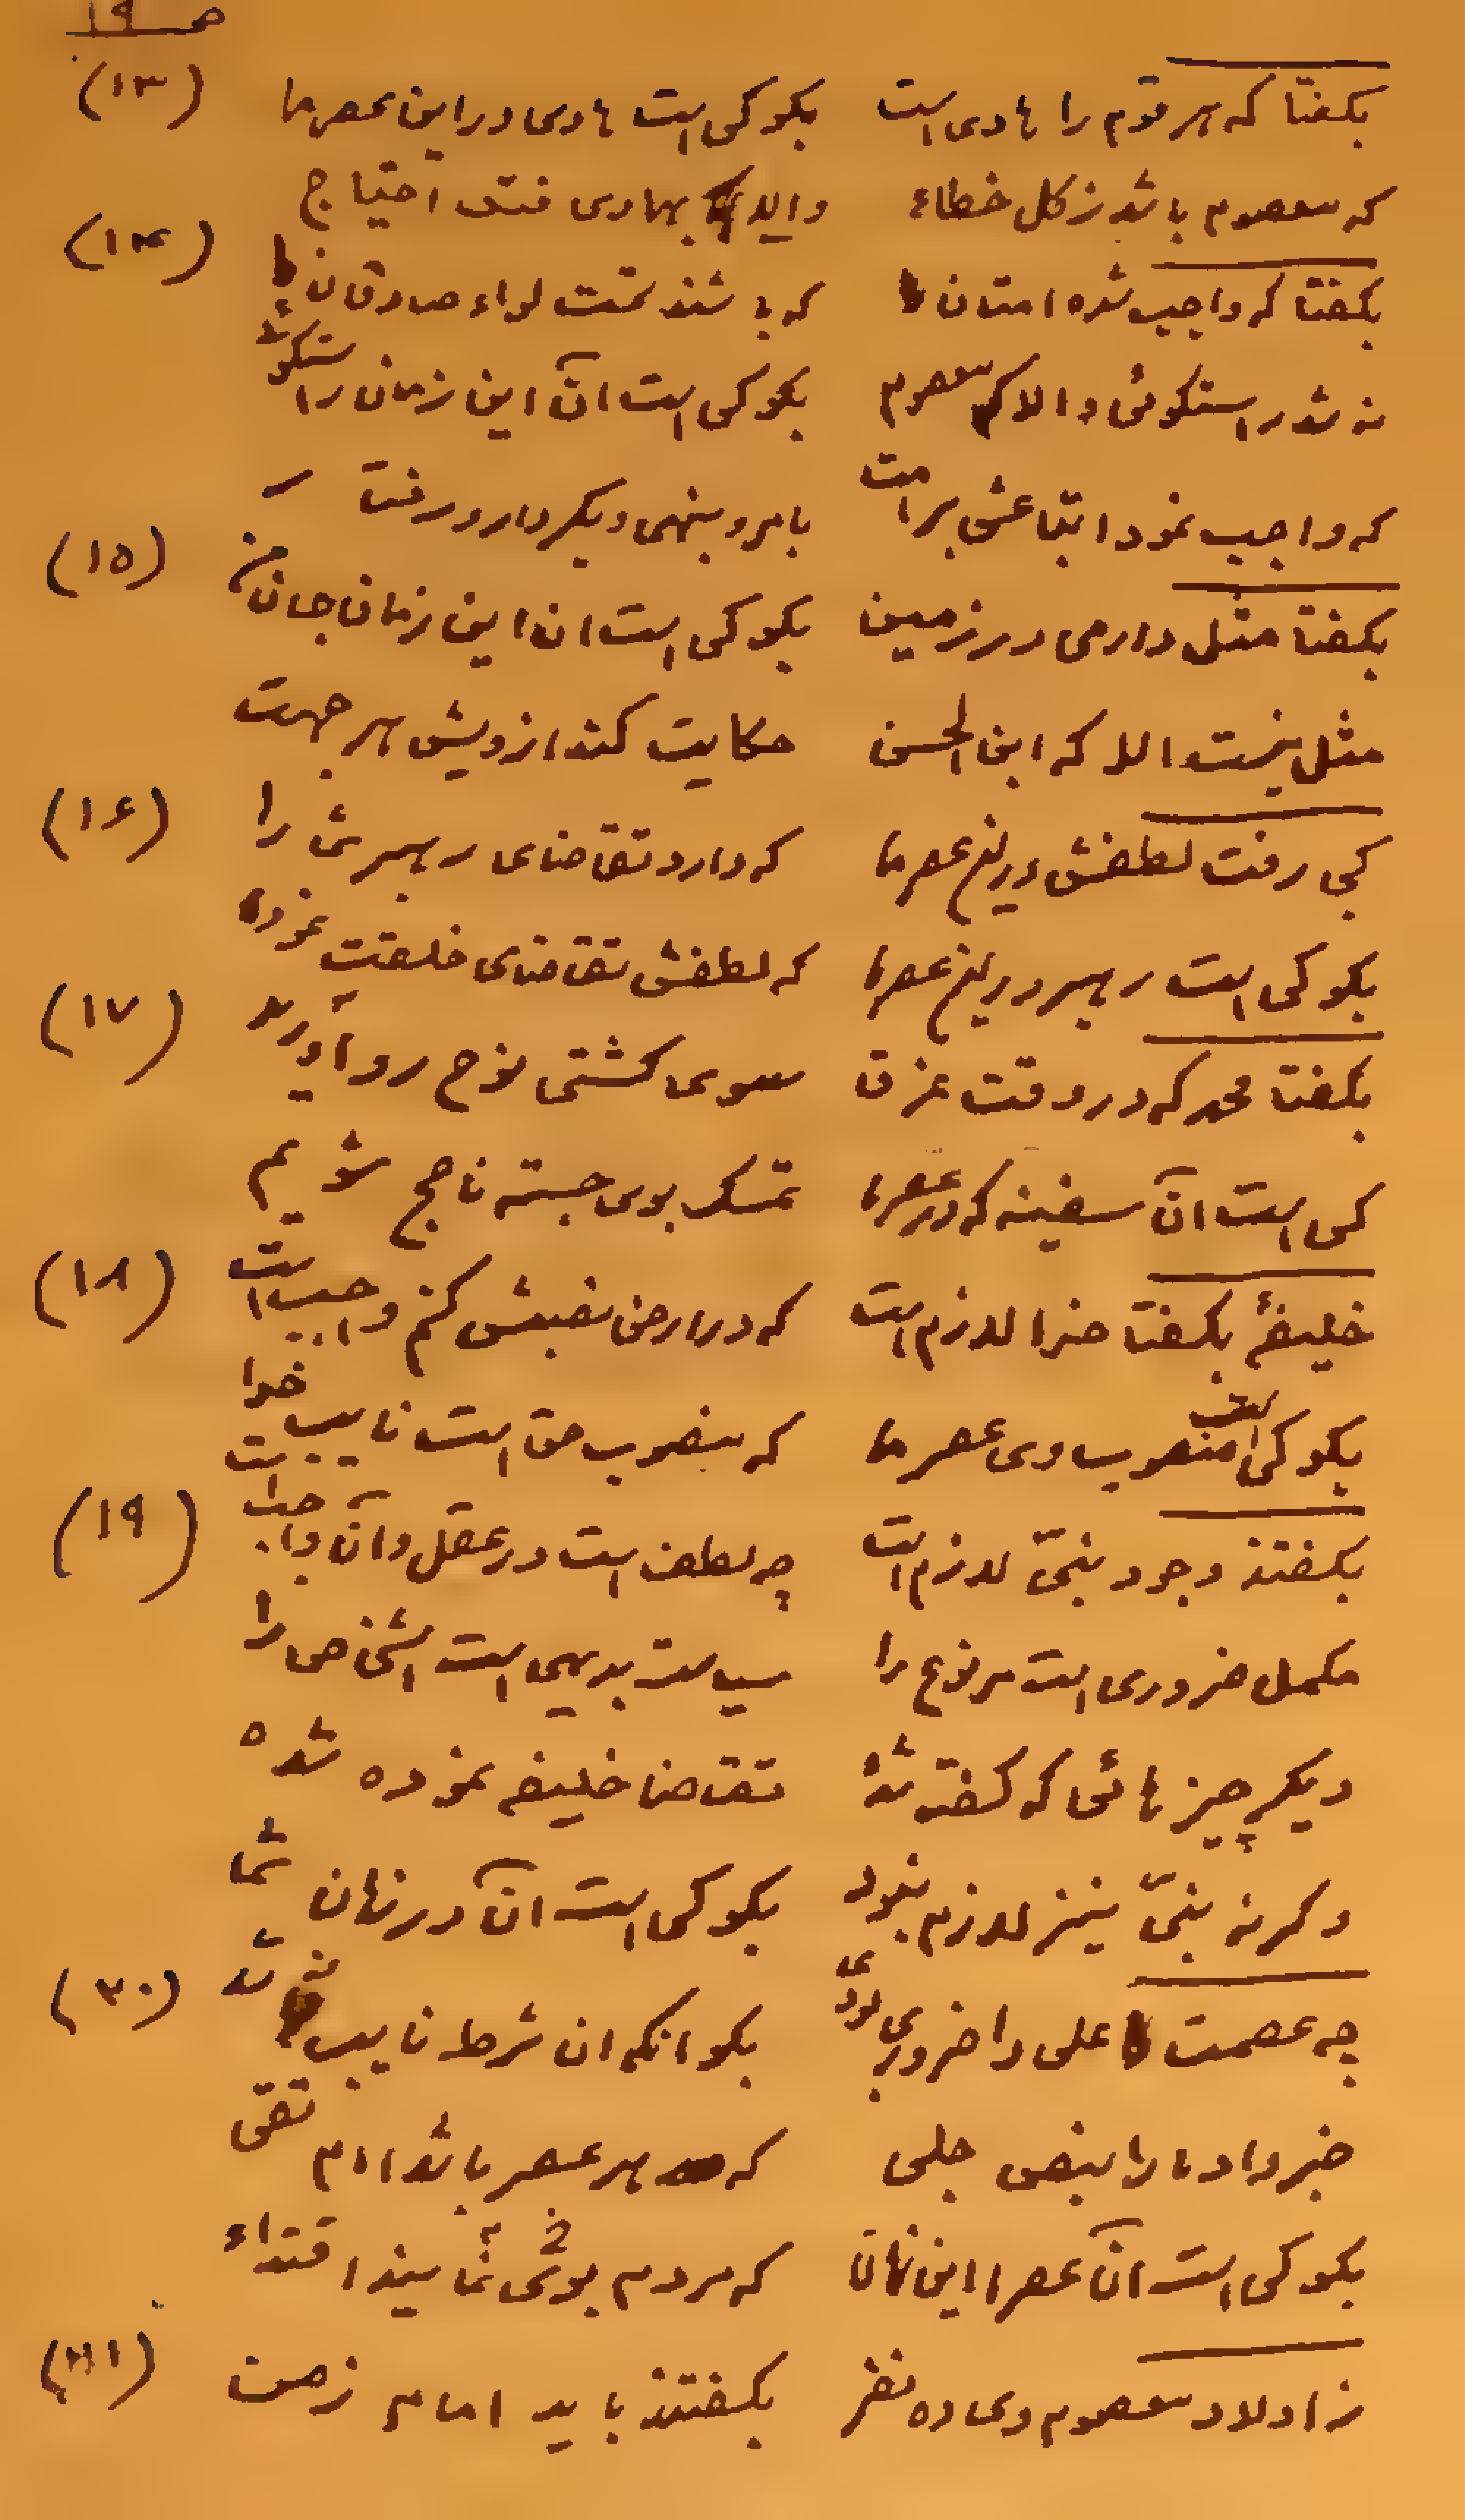 صـ ١٩
بگفتا که هر قوم را هادی است بگو کی است هادی در این عصر ما (١٣)
که معصوم باشد ز کل خطاء والا بهادی فتد احتیاج
بگفتا که واجب شده امتان که باشند تحت لواء صادقان (١٤)
نه شد راستگوئی والا که معصوم بگو کی است آن این زمان راستگو
که واجب نمود اتباعش برامت بامر و بنهی دیگر دار و رفتار
بگفتا مثل دارمی در زمین بگو کی است ان این زمان جان من (١٥)
مثل نیست الا که ابن الحسن حکایت کند از ویش هر جهت
کجی رفت لطفش در این عصر ما که دارد تقاضای رهبرش را (١۶)
بگو کی است رهبر در این عصر ما که لطفش تقاضای خلقت نموده
بگفتا محمد که در وقت غرق سوی کشتی نوح رو آورید (١٧)
کی است آن سفینه که در عصر ما تمسک بوی جسته ناجح شویم
خلیفهٔ بگفتا خدا لازم است که در ارض نصبش کنم واجب است (١٨)
بگو کی است منصوب وی عصر ما که منصوب حق است نایب خدا
بگفتند وجود نبیّ لازم است چه لطف است در عقل و آن واجب است (١٩)
مکمل ضروری است مر نوع را سیاست بدیهی است اشخاص را
دیگر چیزهائی که گفته شد تقاضا خلیفه نموده شده
وگرنه نبیّ نیز لازم نبود بگو کی است آن در زمان شما
چه عصمت علی را ضروری بودی بگو انکه ان شرط نایب نه شد (٣٠)
خبر داد ما را بنص جلی که هر عصر باشد امام تقی
بگو کی است آن عصر این زمان که مردم بوی نمایند اقتداء
ز اولاد معصوم وی ده نفر بگفتند باید امام زمن (٢١)